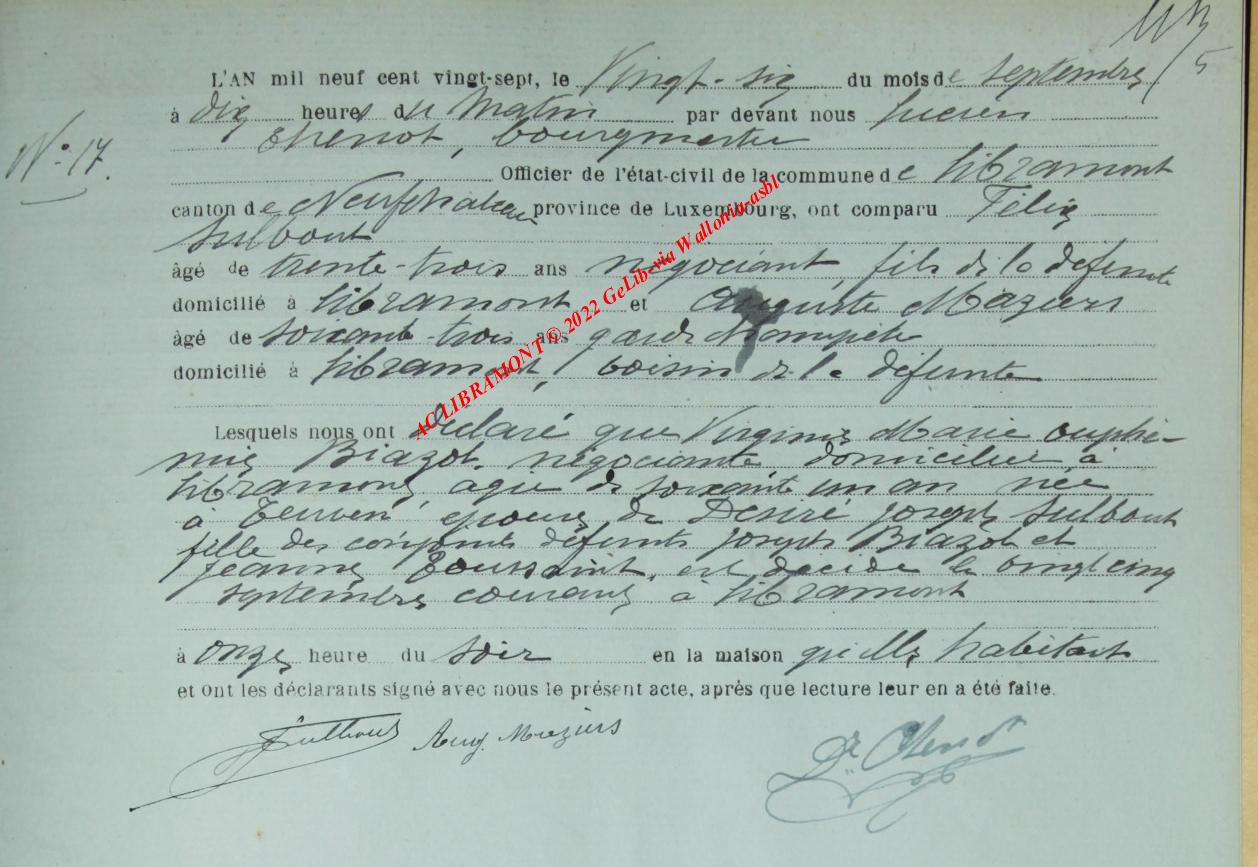 N° 17.
L'AN mil neuf cent vingt-sept, le Vingt-six du mois de septembre
à dix heures du Matin par devant nous Lucien
Thenot, bourgmestre
Officier de l'état-civil de la commune de Libramont
canton de Neufchateau province de Luxembourg, ont comparu Félix
Sulbout
âgé de trente-trois ans négociant, fils de la défunte
domicilié à Libramont et Auguste Maziers
âgé de soixante-trois ans garde champêtre
domicilié à Libramont, voisin de la défunte
Lesquels nous ont déclaré que Virginie Marie Euphé-
mie Biazot, négociante, domiciliée à
Libramont, agée de soixante un an née
à épouse de Désiré Joseph Sulbout
fille des conjoints défunts Joseph Biazot et
Jeanne Toussaint, est décédé le vingt cinq
septembre courant à Libramont
à onze heure du soir en la maison qu'elle habitait
et ont les déclarants signé avec nous le présent acte, après que lecture leur en a été faite.
FSulbout Aug. Maziers Dr Thenot
AC LIBRAMONT © 2022 GeLib-via Wallonia-asbl